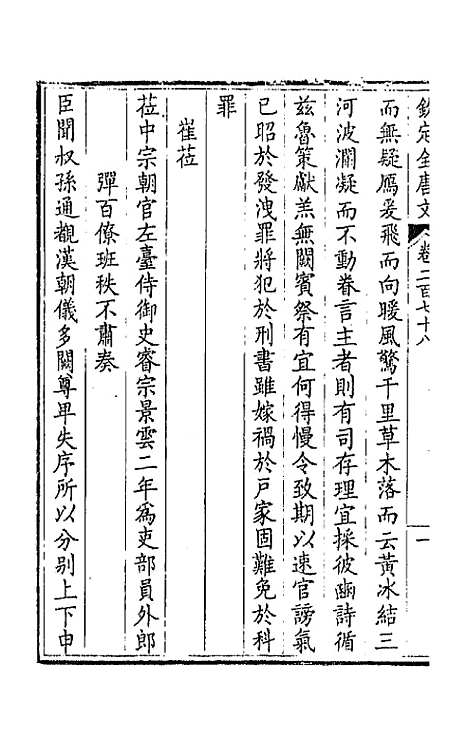 欽定全唐文 卷二百七十八 一
而無疑鴈爰飛而向暖風驚千里草木落而云黃冰結三
河波瀾凝而不動眷言主者則有司存理宜採彼豳詩循
茲魯策獻羔無闕賓祭有宜何得慢令致期以速官謗氣
已昭於發洩罪將犯於刑書雖嫁禍於戸家固難免於科
罪
崔莅
莅中宗朝官左臺侍御史睿宗景雲二年為吏部員外郎
彈百僚班秩不肅奏
臣聞叔孫通觀漢朝儀多闕尊卑失序所以分別上下申